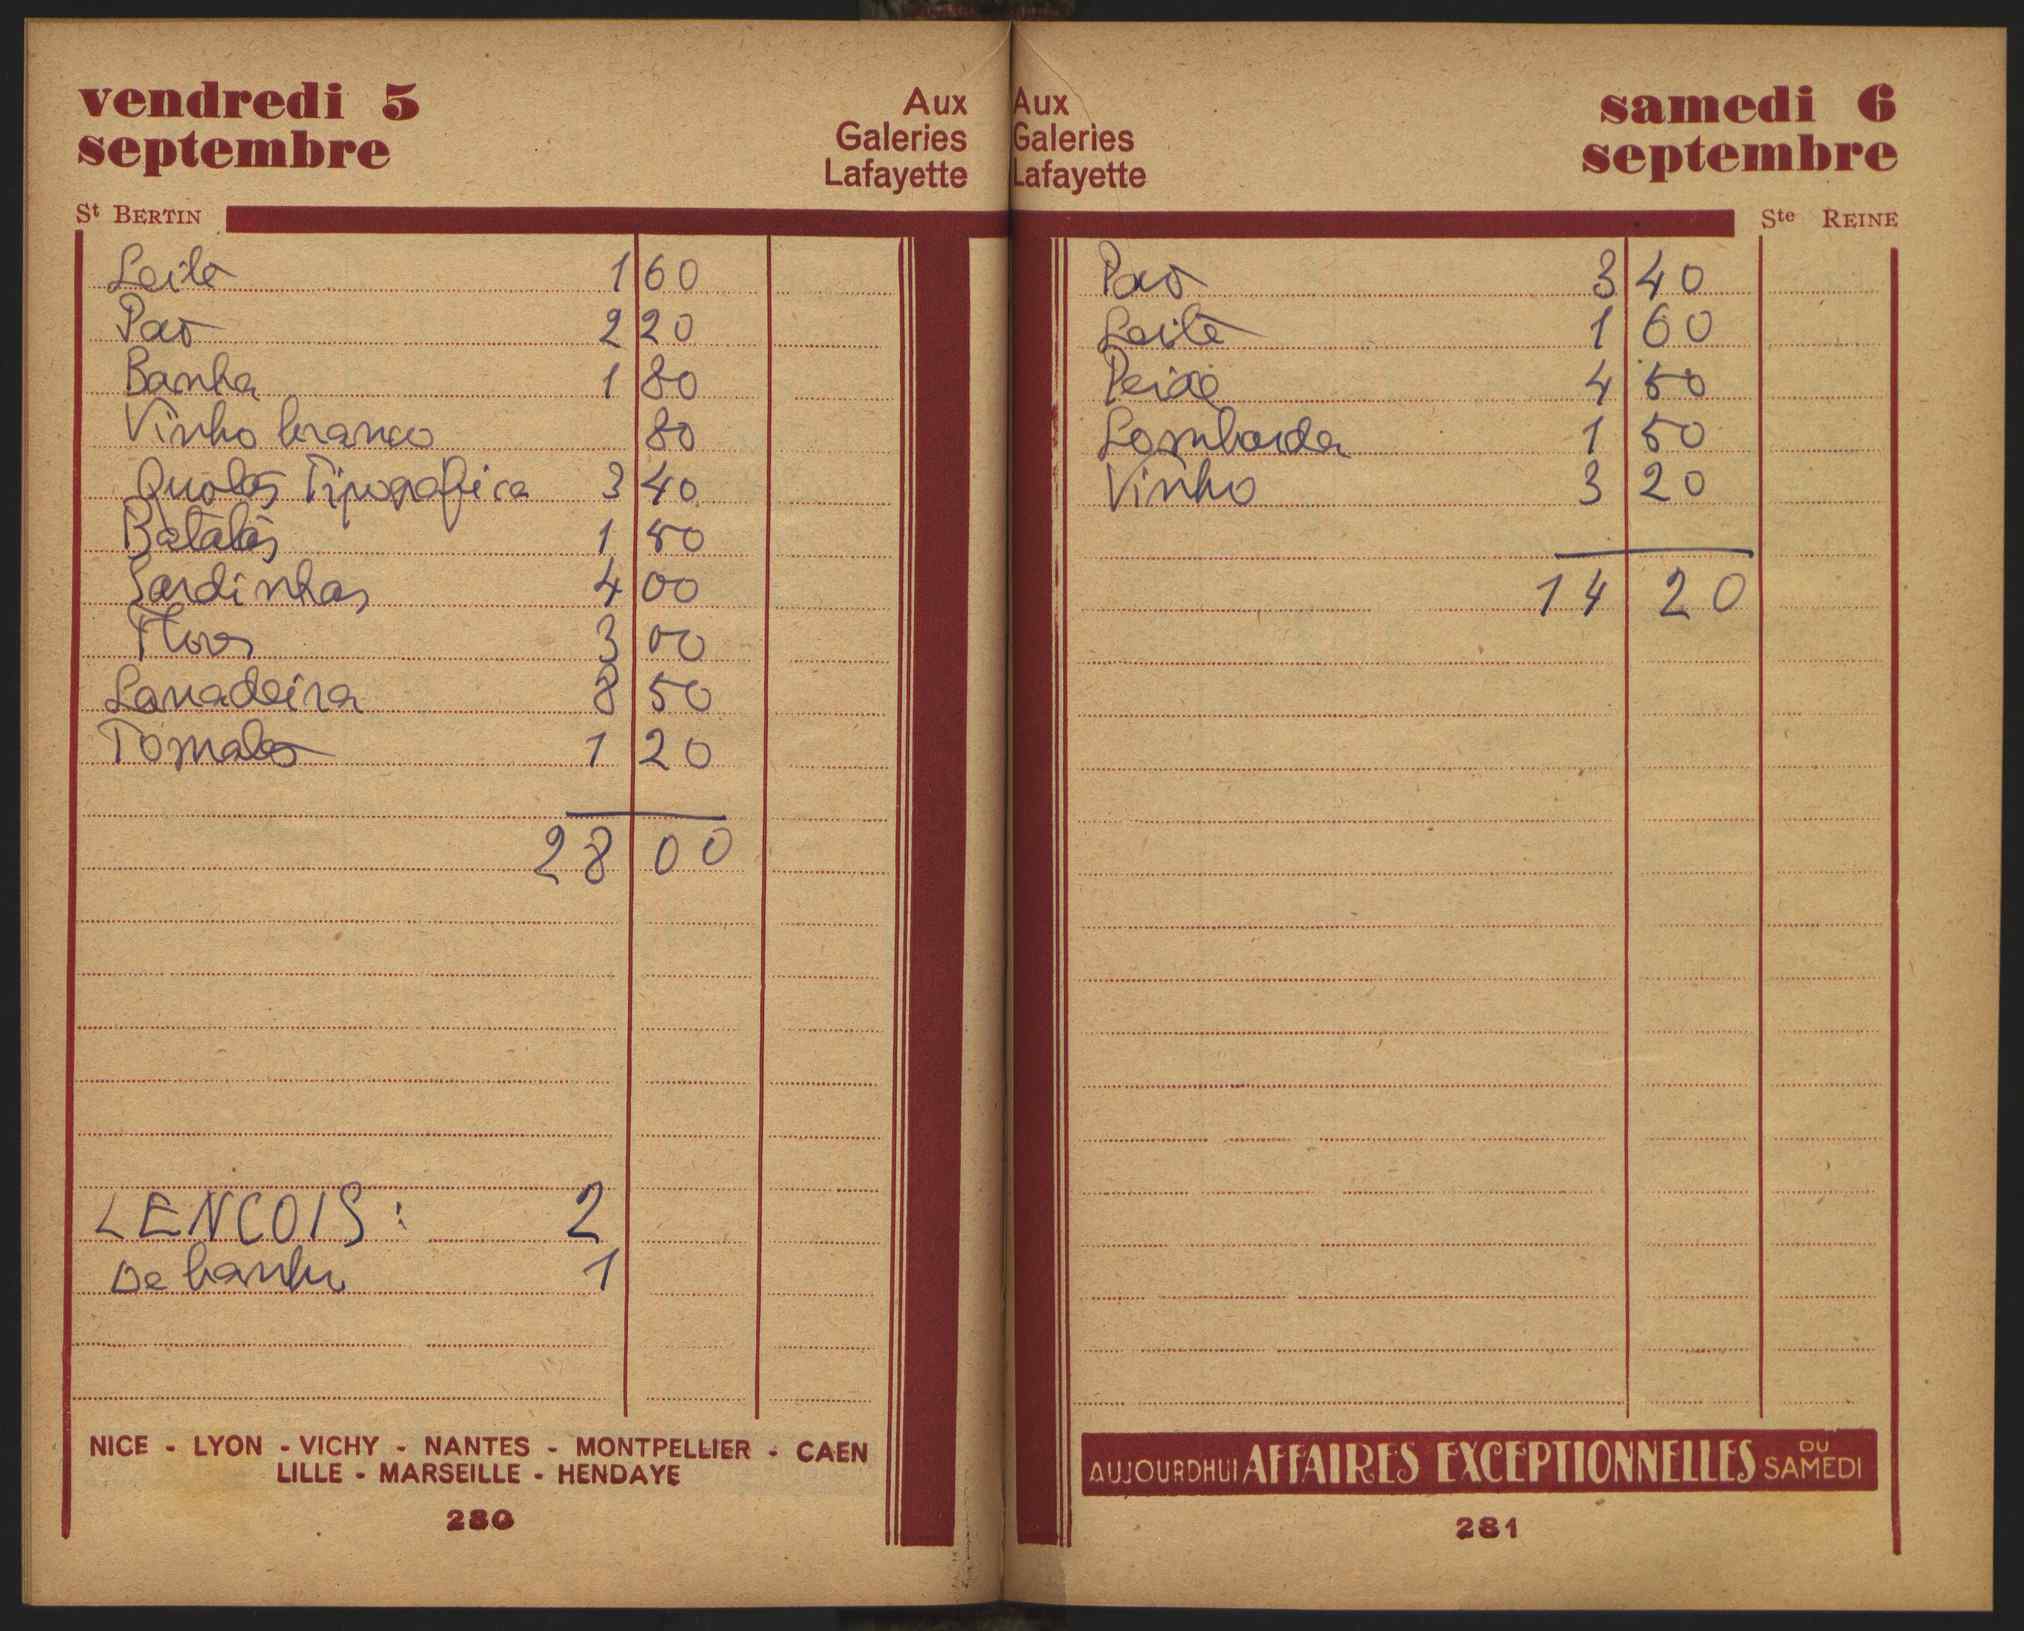 vendredi 5
septembre
Aux
Galeries
Lafayette
St BERTIN
Leite 1 60
Pão 2 20
Banha 1 80
Vinho branco 80
Quotas Tipografica 3 40
Batatas 1 50
Sardinhas 4 00
3 00
Lavadeira 8 50
Tomates 1 20
28 00
LENCOIS: 2
De banho 1
NICE - LYON - VICHY - NANTES - MONTPELLIER - CAEN
LILLE - MARSEILLE - HENDAYE
280
Aux
Galeries
Lafayette
samedi 6
septembre
Ste REINE
Pão 3 40
Leite 1 60
Peixe 4 50
Lombarda 1 50
Vinho 3 20
14 20
AUJOURDHUI AFFAIRES EXCEPTIONNELLES DU SAMEDI
281